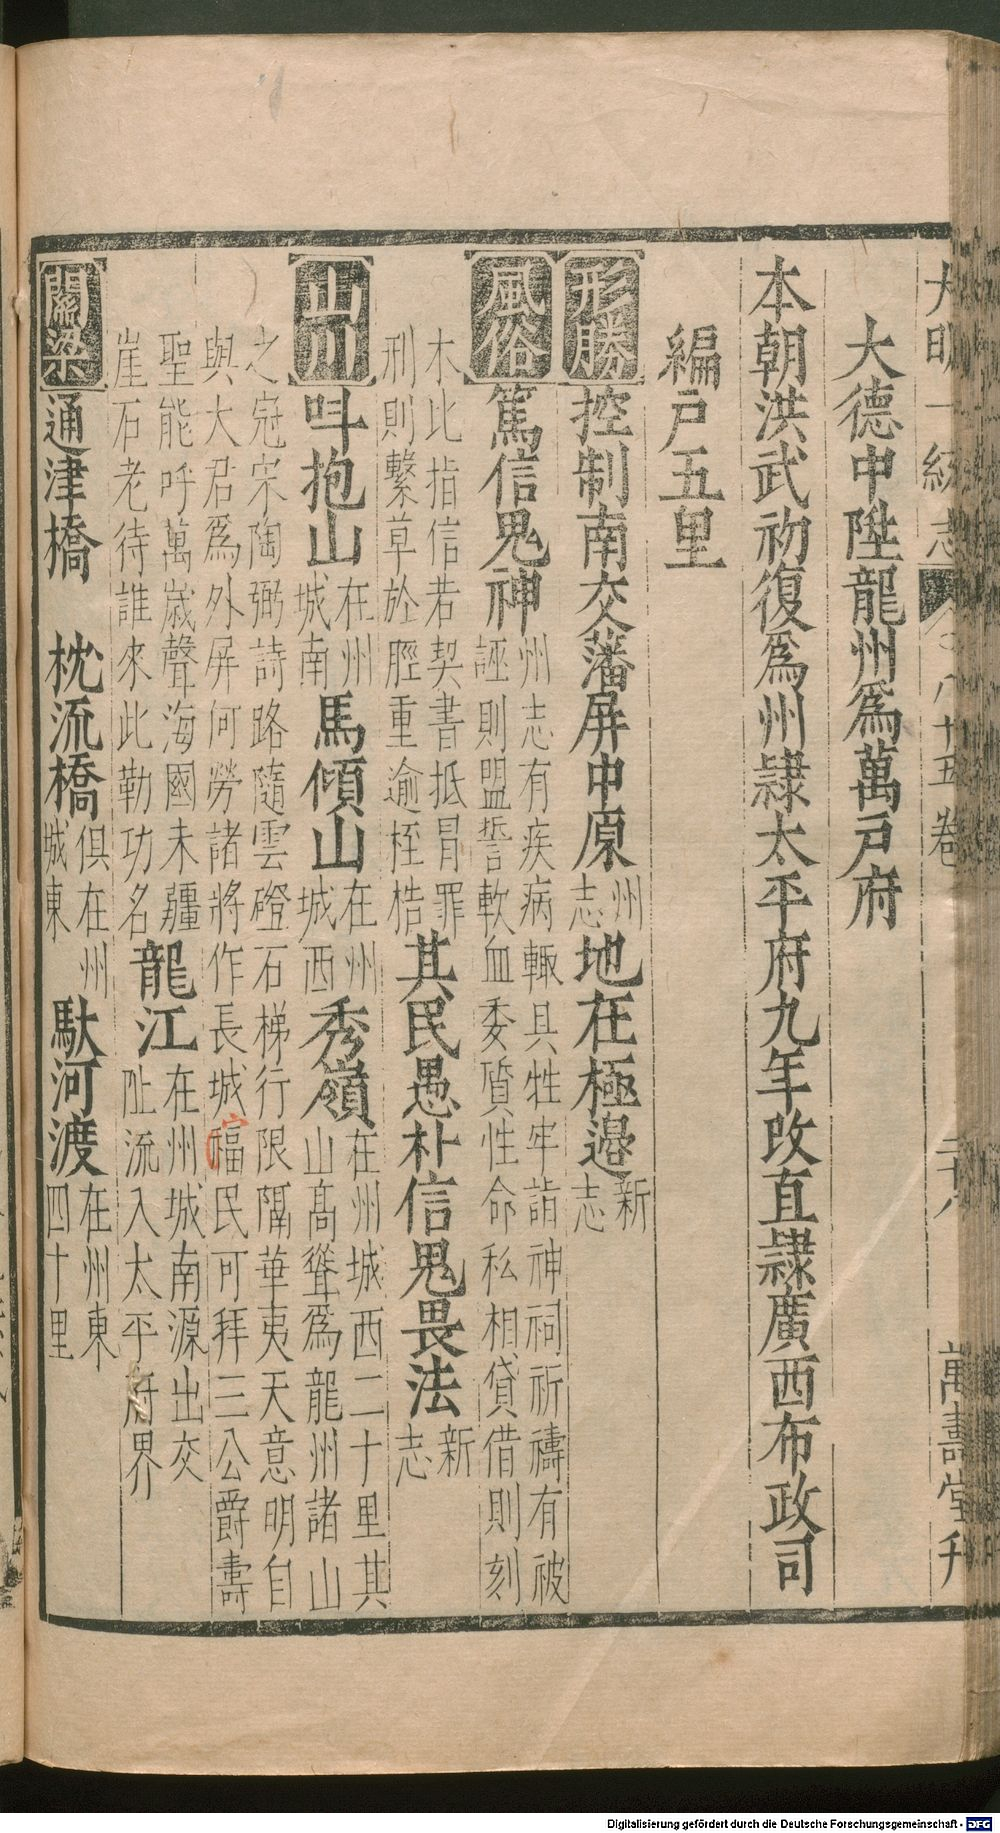 大明一統志 八十五卷 二十八 萬壽堂刋
大德中陞龍州爲萬戶府
本朝洪武初復爲州隷太平府九年改直隷廣西布政司
編戶五里
形勝 控制南交藩屏中原 州志 地在極邉 新志
風俗 篤信鬼神 州志有疾病輙具牲牢詣神祠祈禱有被
誣則盟誓軟血委質性命私相貸借則刻
木比指信若契書抵冐罪
刑則繫草於脛重逾桎梏 其民愚朴信鬼畏法 新志
山川 呌抱山 在州城南 馬傾山 在州城西 秀嶺 在州城西二十里其
山髙聳爲龍州諸山
之㓂宋陶弼詩路隨雲磴石梯行限隔華夷天意明自
與大君爲外屏何勞諸將作長城福民可拜三公爵壽
聖能呼萬歲聲海國未疆
崖石老待誰來此勒功名 龍江 在州城南源出交
阯流入太平府界
關梁 通津橋 枕流橋 俱在州城東 馱河渡 在州東四十里
Digitalisierung gefördert durch die Deutsche Forschungsgemeinschaft - DFG